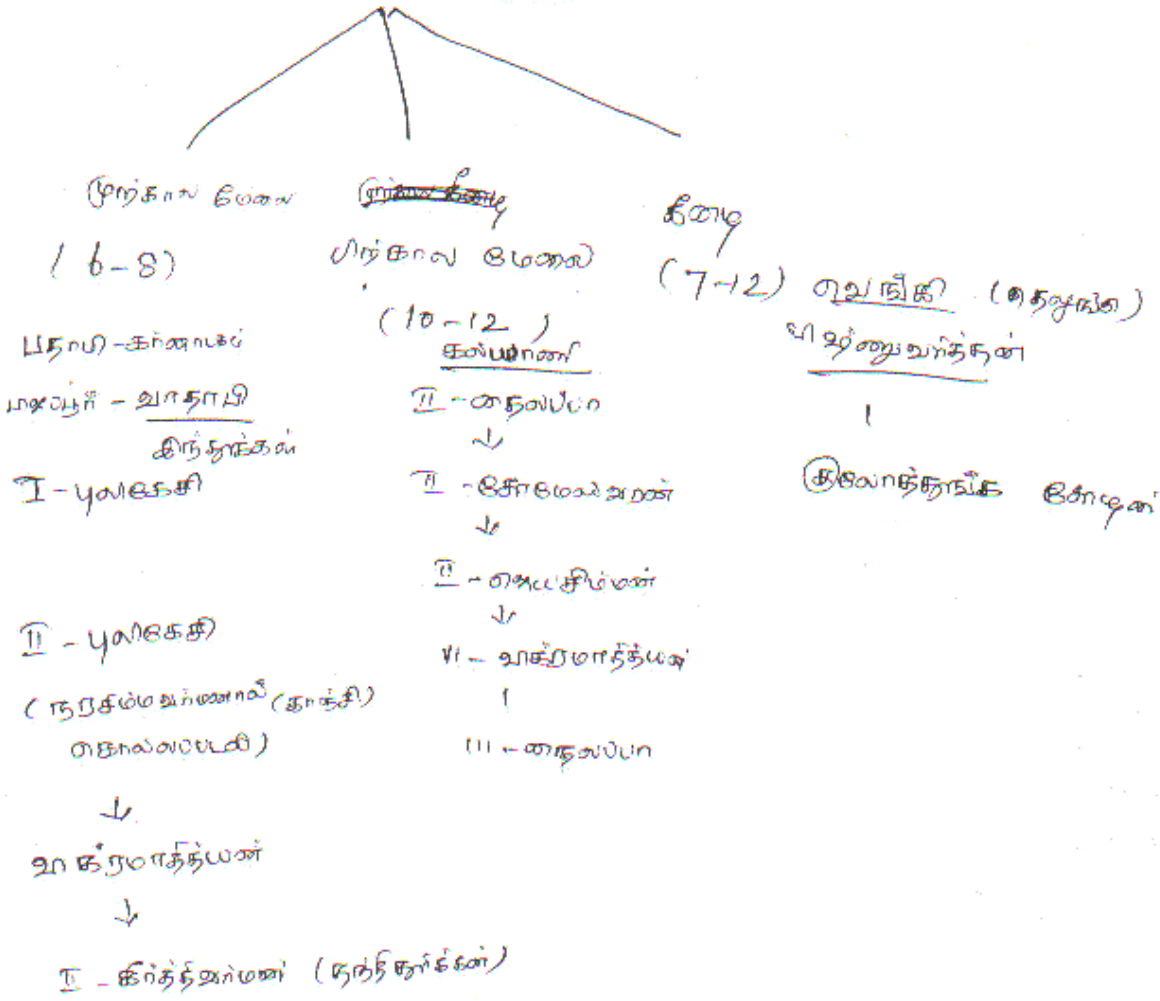 முற்கால மேலை
(6-8)
பதாமி - கர்னாடகம்
- வாதாபி
இந்துக்கள்
I - புலிகேசி
II - புலிகேசி
(நரசிம்மவர்மனால் (காஞ்சி)
கொல்லப்படல்)
↓
விக்ரமாதித்யன்
↓
II - கீர்த்திவர்மன் (தந்திதுர்க்கன்)
பிற்கால மேலை
(10-12)
கல்யாணி
II - தைலப்பா
↓
II - சோமேஸ்வரன்
↓
II - ஜெயசிம்மன்
↓
VI - விக்ரமாதித்யன்
III - தைலப்பா
கீழை
(7-12) வெங்கி (தெலுங்கு)
விஷ்ணுவர்த்தன்
குலோத்துங்க சோழன்